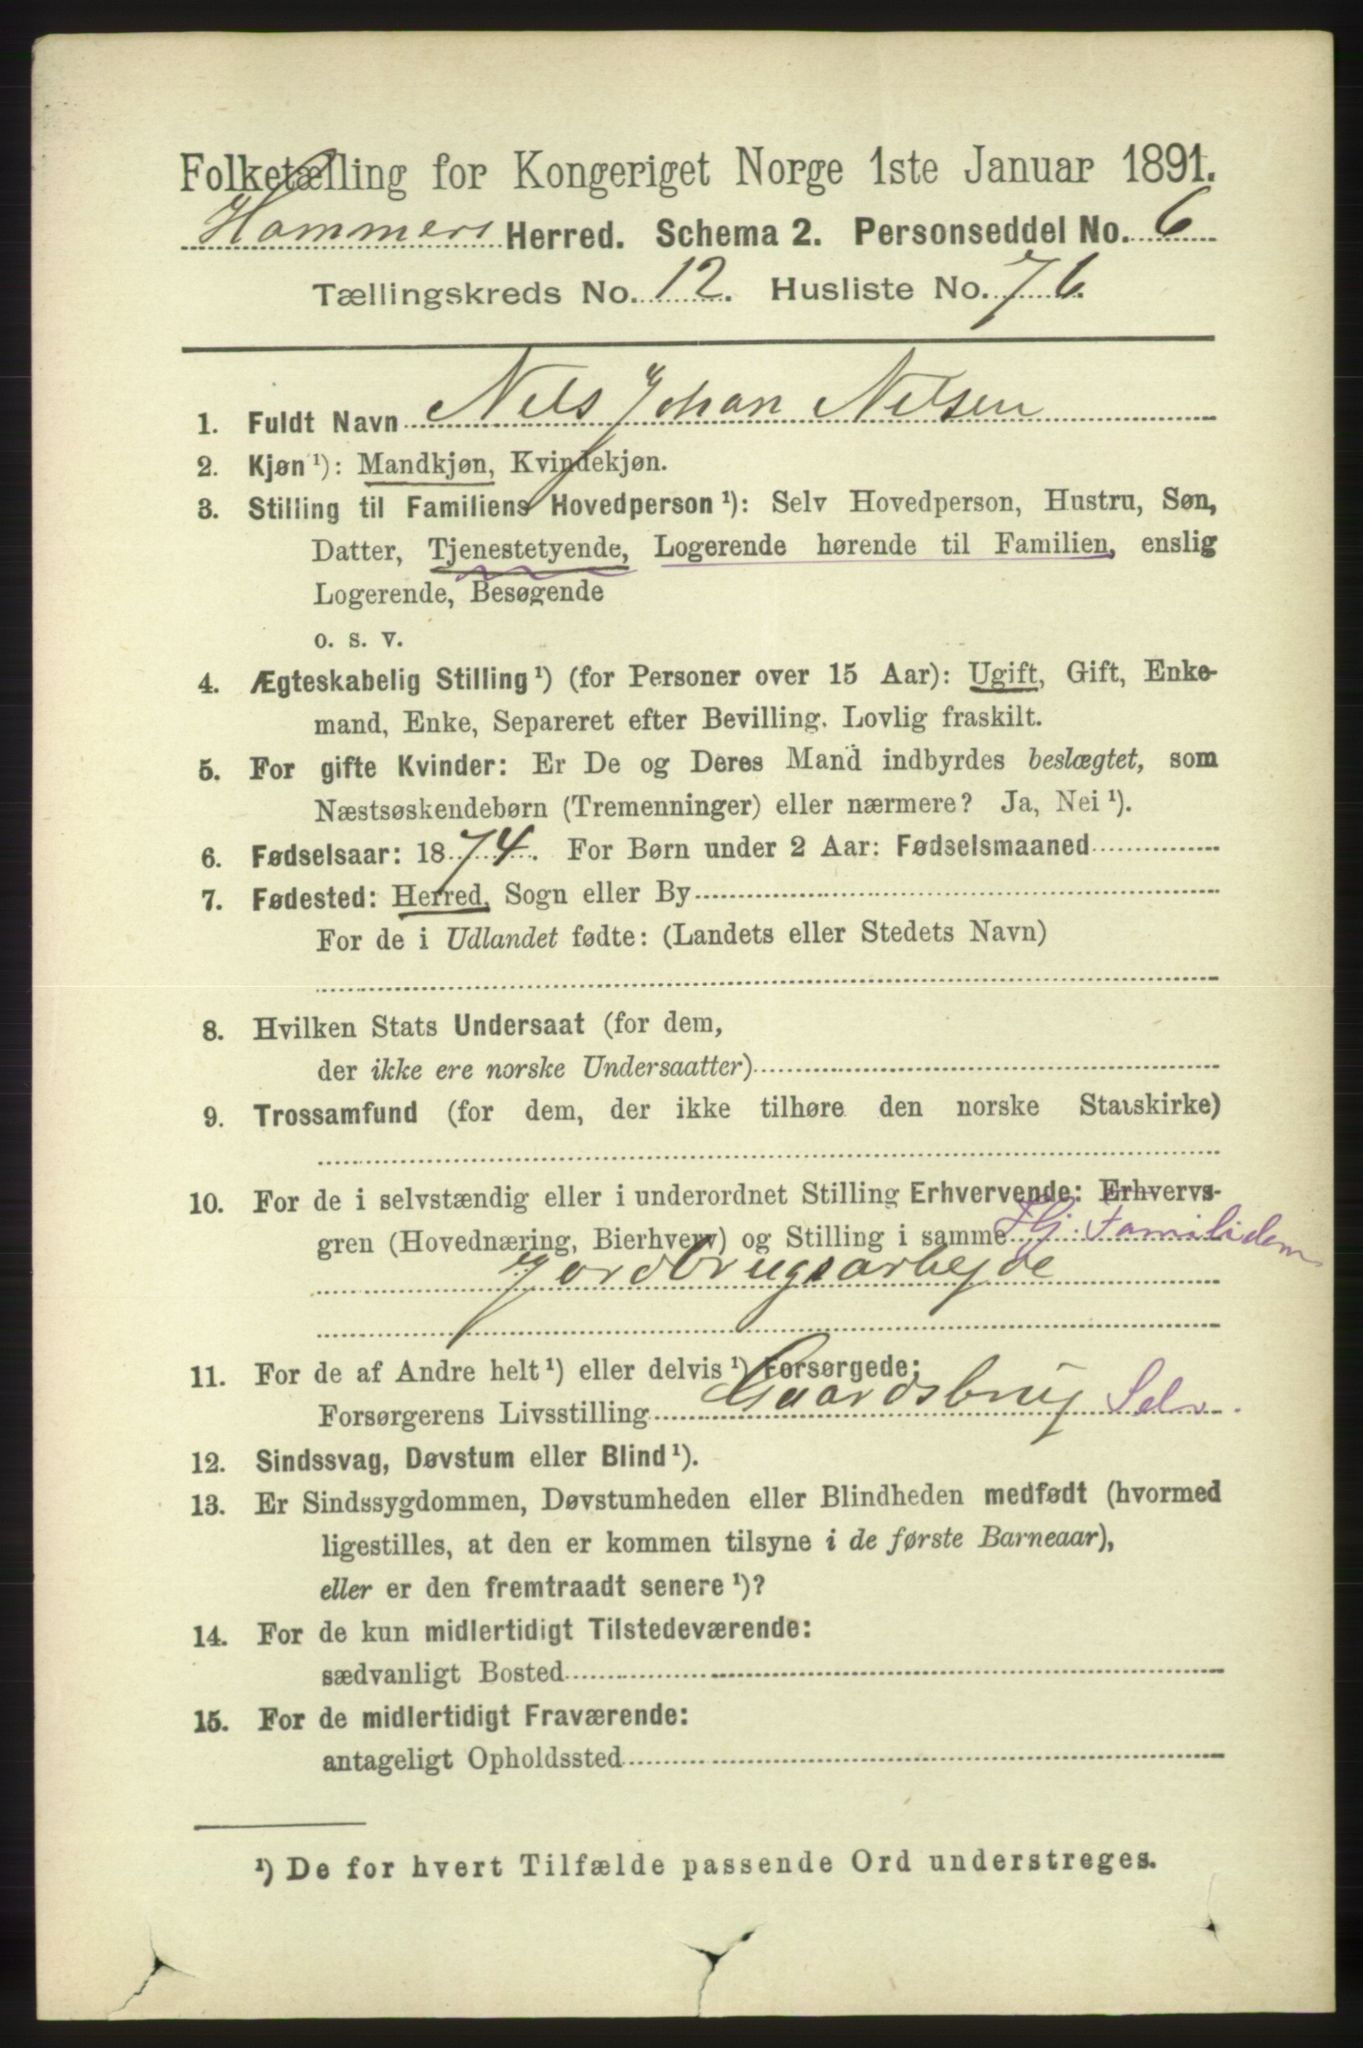 Folketælling for Kongeriget Norge 1ste Januar 1891.
Hammers Herred. Schema 2. Personseddel No. 6
Tællingskreds No. 12. Husliste No. 76.
1. Fuldt Navn Nels Johan Nelsen
2. Kjøn ¹): Mandkjøn, Kvindekjøn.
3. Stilling til Familiens Hovedperson ¹): Selv Hovedperson, Hustru, Søn,
Datter, Tjenestetyende, Logerende hørende til Familien, enslig
Logerende, Besøgende
o. s. v.
4. Ægteskabelig Stilling ¹) (for Personer over 15 Aar): Ugift, Gift, Enke-
mand, Enke, Separeret efter Bevilling. Lovlig fraskilt.
5. For gifte Kvinder: Er De og Deres Mand indbyrdes beslægtet, som
Næstsøskendebørn (Tremenninger) eller nærmere? Ja, Nei ¹).
6. Fødselsaar: 1874. For Børn under 2 Aar: Fødselsmaaned
7. Fødested: Herred, Sogn eller By
For de i Udlandet fødte: (Landets eller Stedets Navn)
8. Hvilken Stats Undersaat (for dem,
der ikke ere norske Undersaatter)
9. Trossamfund (for dem, der ikke tilhøre den norske Statskirke)
10. For de i selvstændig eller i underordnet Stilling Erhvervende: Erhvervs-
gren (Hovednæring, Bierhverv) og Stilling i samme Hj. Familidem
Jordbrugsarbejde
11. For de af Andre helt ¹) eller delvis ¹) Forsørgede:
Forsørgerens Livsstilling Gaardsbrug Selv.
12. Sindssvag, Døvstum eller Blind ¹).
13. Er Sindssygdommen, Døvstumheden eller Blindheden medfødt (hvormed
ligestilles, at den er kommen tilsyne i de første Barneaar),
eller er den fremtraadt senere ¹)?
14. For de kun midlertidigt Tilstedeværende:
sædvanligt Bosted
15. For de midlertidigt Fraværende:
antageligt Opholdssted
¹) De for hvert Tilfælde passende Ord understreges.